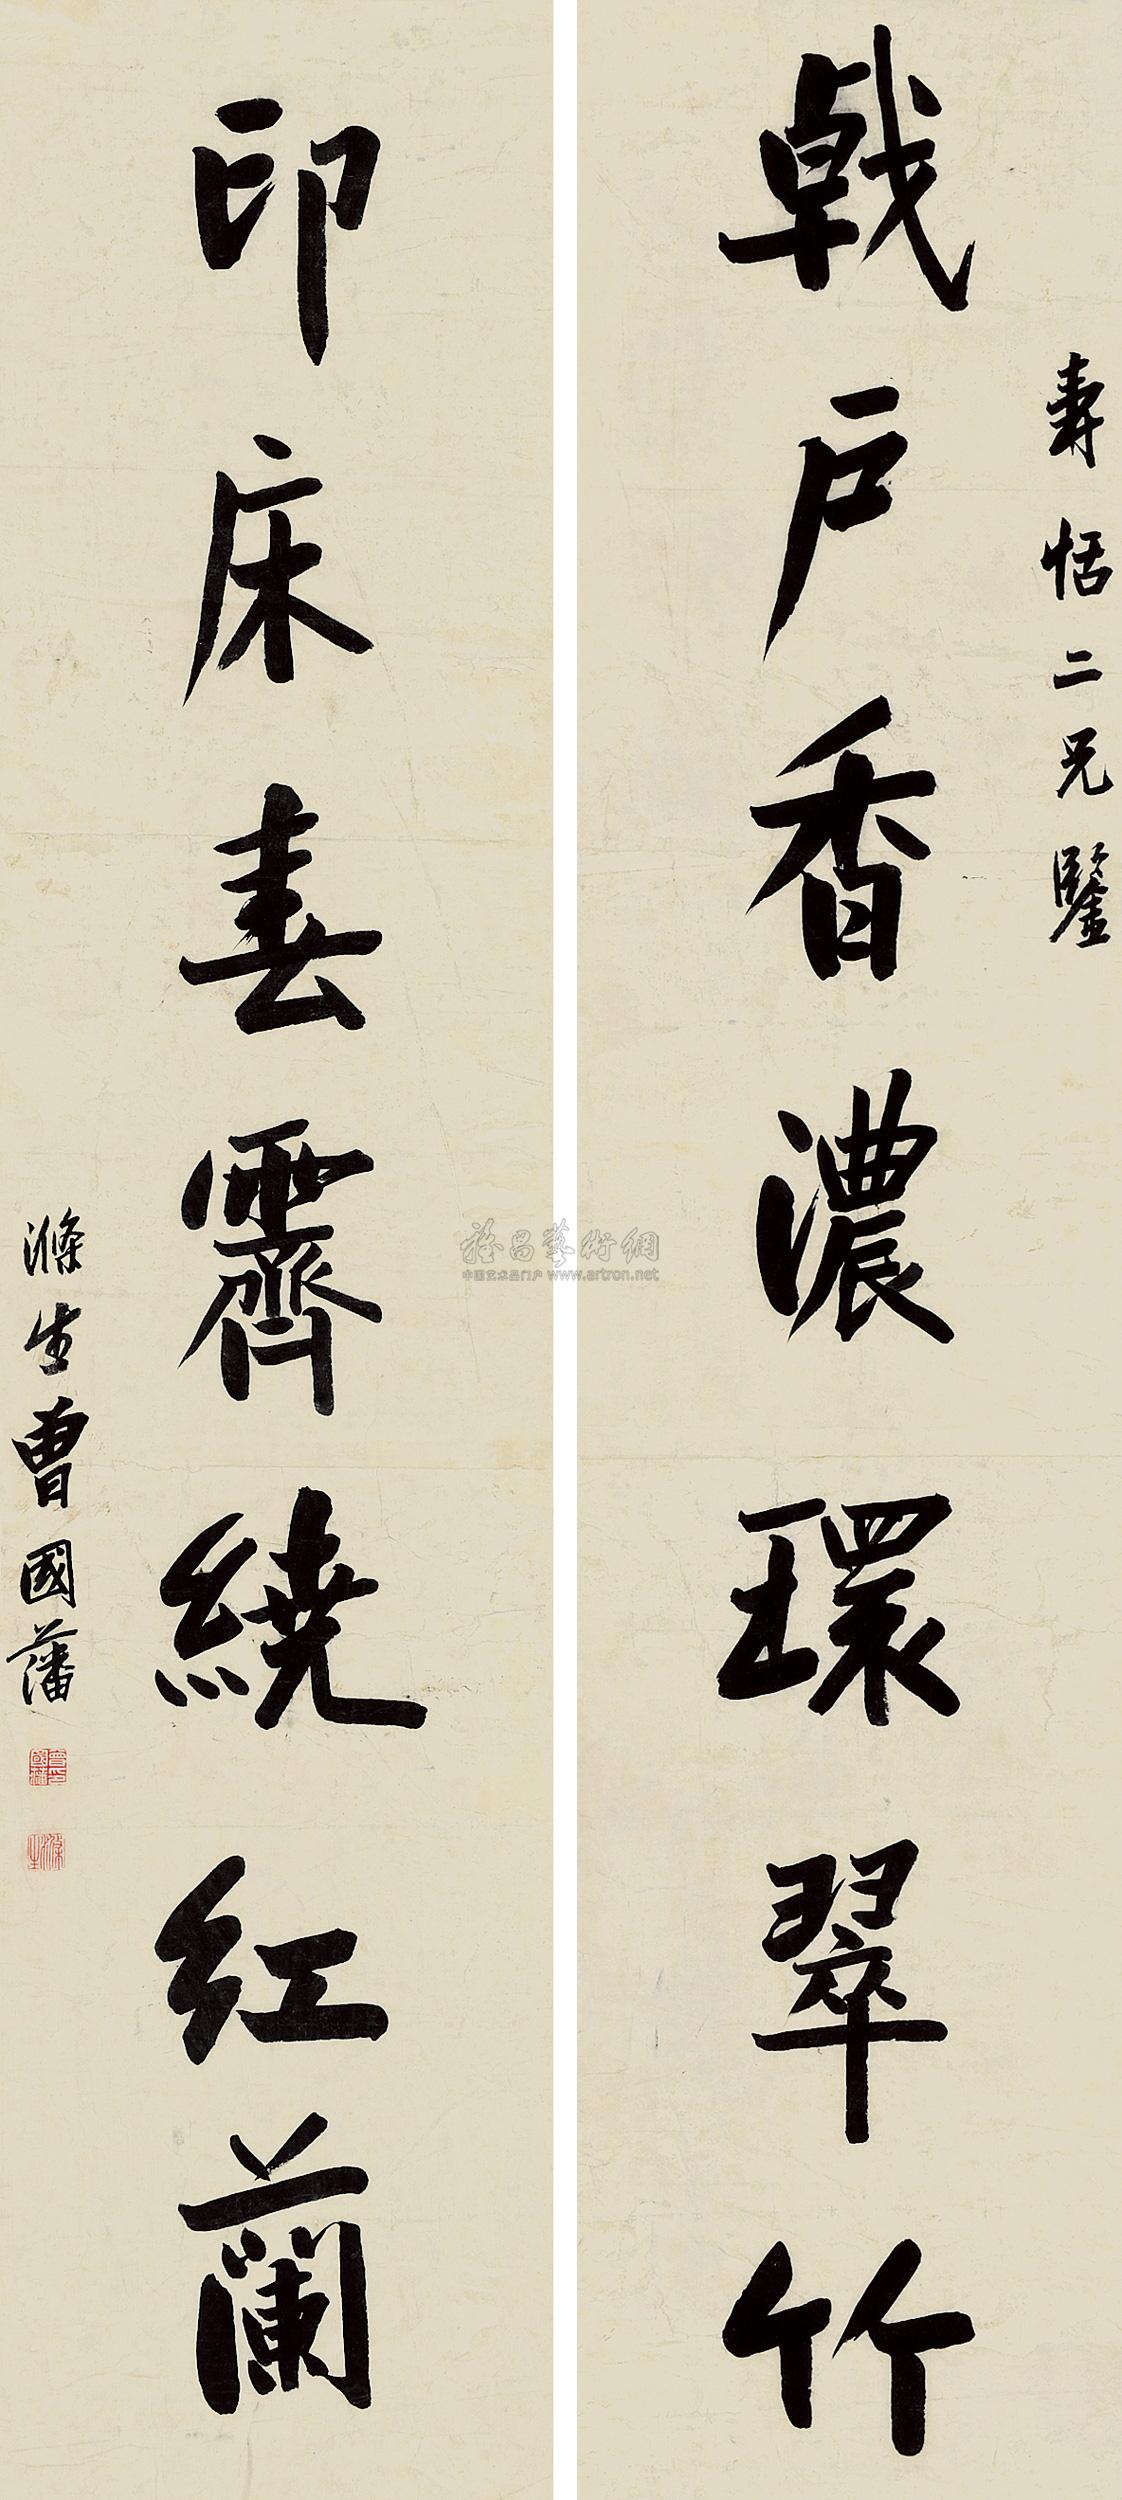 壽恬二兄鑒
戟户香濃環翠竹
印床春霽繞紅蘭
滌生曾國藩
雅昌藝術網
中国艺术品门户 www.artron.net